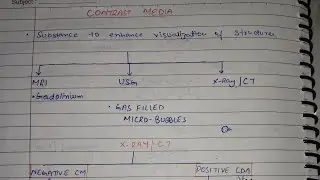 Subject
CONTRAST MEDIA
• Substance to enhance visualization of structures
MRI USG X-Ray/CT
• Gadolinium • GAS FILLED
MICRO-BUBBLES
X-RAY/CT
NEGATIVE CM POSITIVE